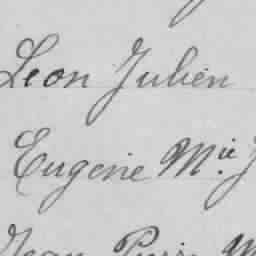 Leon Julien
Eugenie Mie J
Jean Pierre M